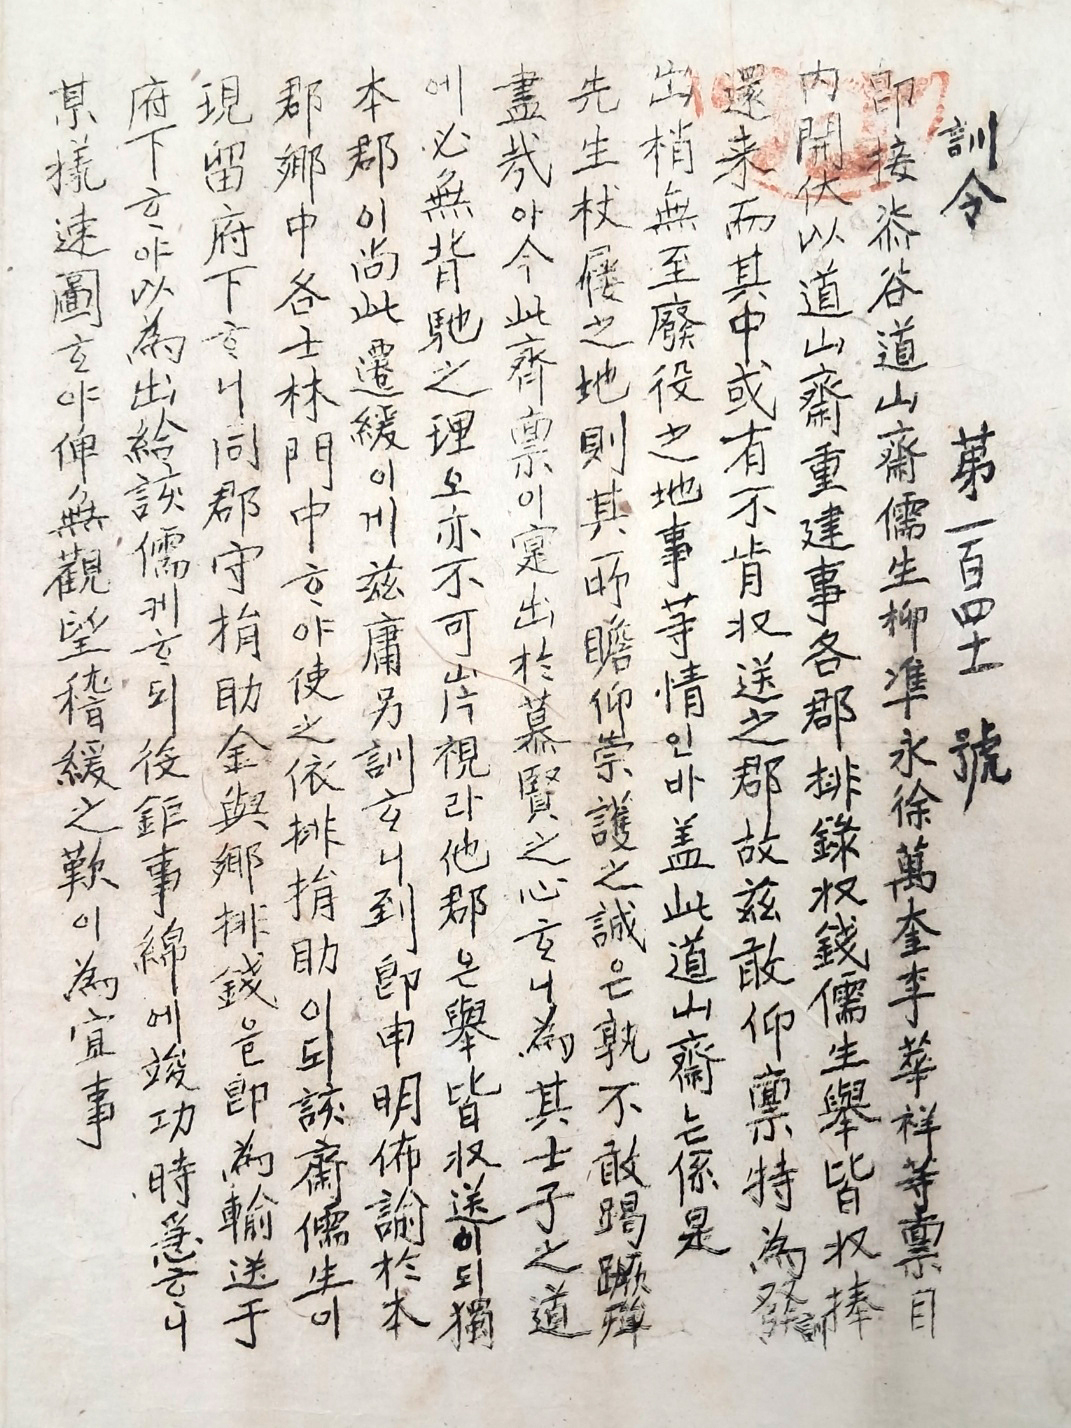 訓令 第一百四十 號
卽接漆谷道山齋儒生柳準永徐萬奎李華祥等稟目
內開伏以道山齋重建事各郡排錄收錢儒生擧皆收捧
還来而其中或有不肯收送之郡故玆敢仰稟特爲發訓
出梢無至廢役之地事等情인바盖此道山齋는係是
先生杖屨之地則其所瞻仰崇護之誠은孰不敢竭蹶殫
盡哉아今此齊稟이寔出於慕賢之心ᄒᆞ니爲其士子之道
에必無背馳之理오亦不可岸視라他郡은擧皆收送이되獨
本郡이尙此遷緩이게玆庸另訓ᄒᆞ니到卽申明佈諭於本
郡鄕中各士林門中ᄒᆞ야使之依排捐助이되該齋儒生이
現留府下ᄒᆞ니同郡守捐助金與鄕排錢은卽爲輸送于
府下ᄒᆞ야以爲出給該儒케ᄒᆞ되役鉅事綿에竣功時急ᄒᆞ니
某樣速圖ᄒᆞ야俾無觀望稽緩之歎이爲宜事